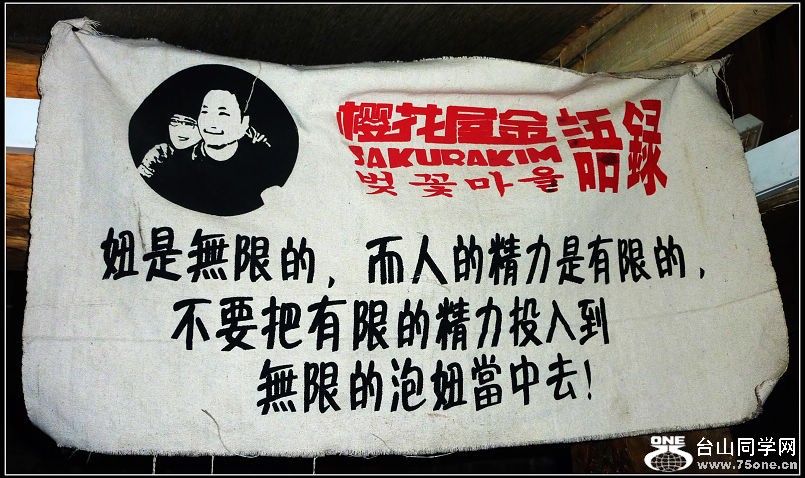 樱花屋金
SAKURAKIM
벚꽃마을
語録
妞是無限的，而人的精力是有限的，
不要把有限的精力投入到
無限的泡妞當中去！
ONE
台山同学网
www.75one.cn